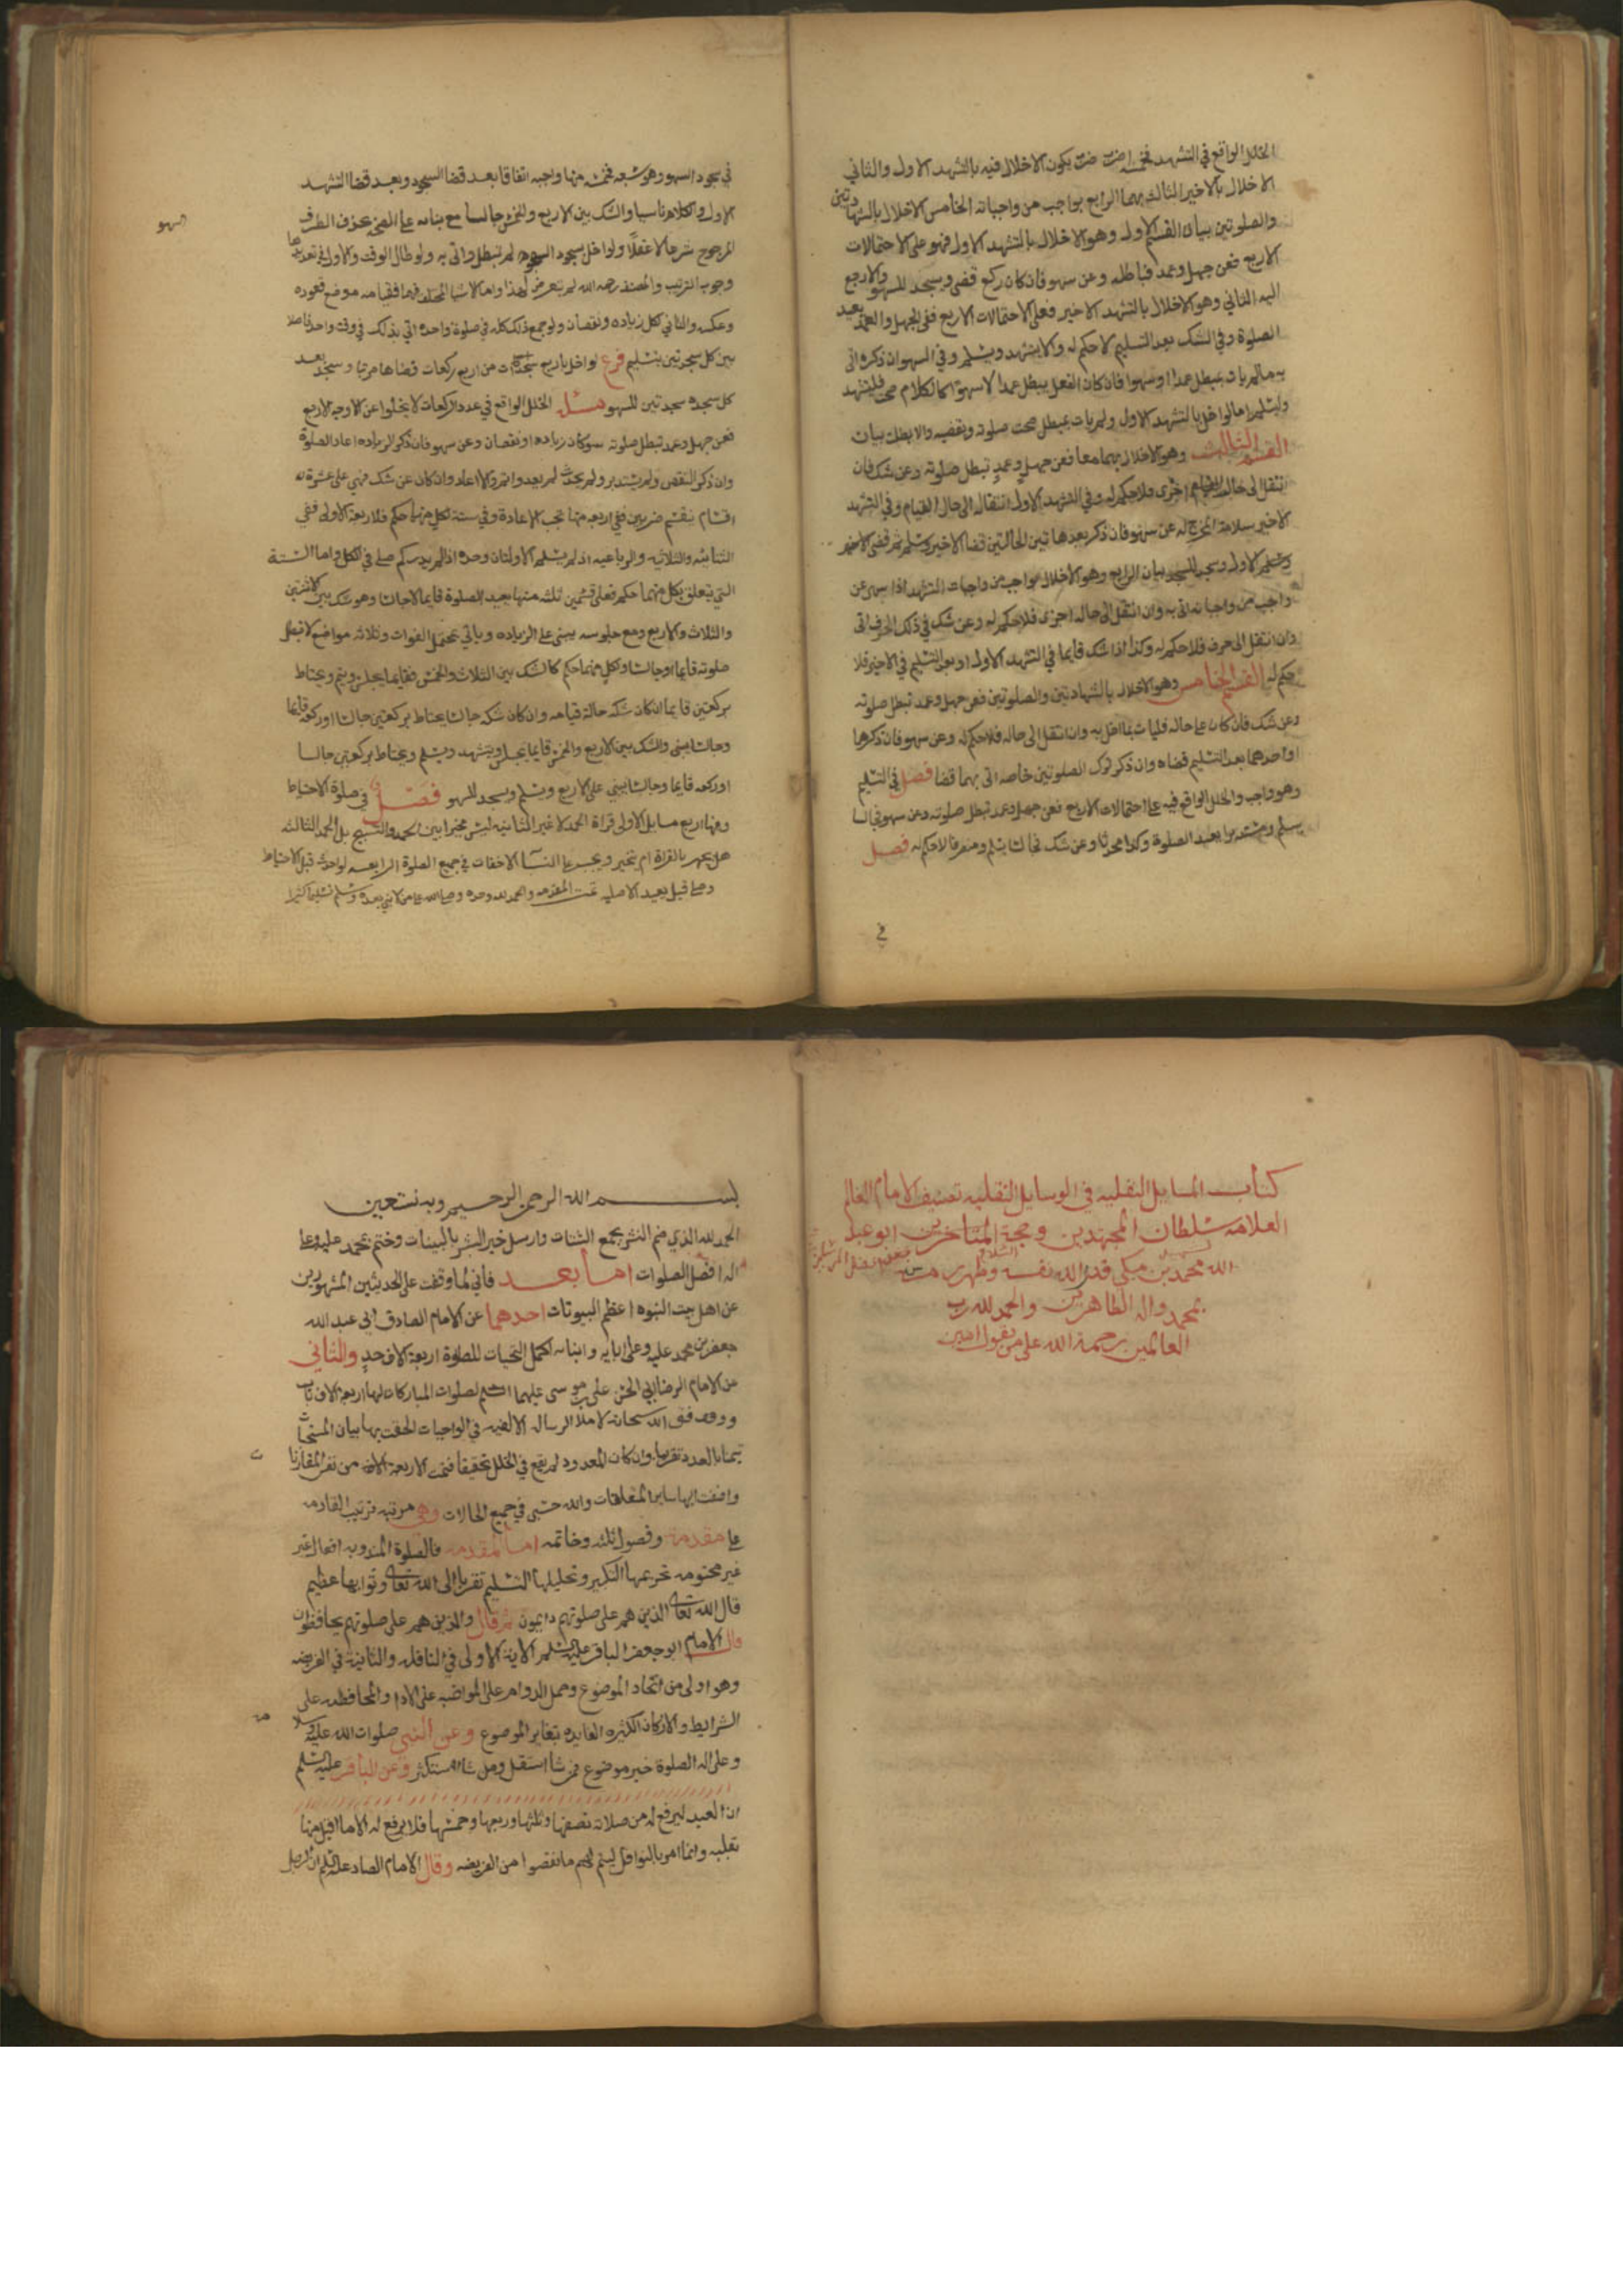 الخلل الواقع في التشهد فخمسة اضرب ضرب يكون الاخلال فيه بالتشهد الاول والثاني
الاخلال بالاخير الثالث بهما الرابع بواجب من واجباته الخامس الاخلال بالشهادتين
والصلوتين بيان القسم الاول وهو الاخلال بالتشهد الاول فهو على الاحتمالات
الاربع فعن جهل وعمد فباطله وعن سهو فان كان ركع قضى وسجد للسهو والا رجع
اليه الثاني وهو الاخلال بالتشهد الاخير فعلى الاحتمالات الاربع ففي الجهل والعمد يعيد
الصلوة وفي الشك بعد التسليم لا حكم له والا يتشهد ويسلم وفي السهو ان ذكره اتى
به مالم يات بمبطل عمدا او سهوا فان كان الفعل يبطل عمدا لا سهوا كالكلام صحت فليتشهد
وليسلم اما لو اخل بالتشهد الاول ولم يات بمبطل صحت صلوته ويقضيه والا بطلت بيان
القسم الثالث وهو الاخلال بهما معا فعن جهل وعمد تبطل صلوته وعن شك فان
انتقل الى حالة اخرى فلا حكم له وفي التشهد الاول انتقاله الى حال القيام وفي التشهد
الاخير سلامة المخرج له عن سهو فان ذكر بعد هاتين الحالتين قضا الاخير وسلم ثم قضى الاخير
وسلم الاول وسجد للسهو بيان الرابع وهو الاخلال بواجب من واجبات التشهد اذا سهى عن
واجب من واجباته اتى به وان انتقل الى حاله اخرى فلا حكم له وعن شك في ذلك الحرف اتى
وان انتقل الى حرف فلا حكم له وكذا اذا شك قايما في التشهد الاول او بعد التسليم في الاخير فلا
حكم له القسم الخامس وهو الاخلال بالشهادتين والصلوتين فعن جهل وعمد تبطل صلوته
وعن شك فان كان على حاله فليات بما اخل به وان انتقل الى حاله فلا حكم له وعن سهو فان ذكرهما
او احدهما بعد التسليم قضاه وان ذكر ترك الصلوتين خاصه اتى بهما قضا فصل في التسليم
وهو واجب والخلل الواقع فيه على احتمالات الاربع فعن جهل وعمد تبطل صلوته وعن سهو فجالسا
يسلم ومستدبرا يعيد الصلوة وكذا محدثا وعن شك فجالسا يسلم ومنصرفا لا حكم له فصل
في
في سجود السهو وهو سبعه فخمسه منها واجبه اتفاقا بعد قضا السجود وبعد قضا التشهد
الاول والكلام ناسيا والشك بين الاربع والخمس جالسا مع بنائه على الصحه بحذف الطرف
المرجوح شرحا لا عقلا ولو اخل بسجود السهو لم تبطل واتى به ولو طال الوقت والاول في تعددهما
السهو
وجوب الترتيب والمصنف رحمه الله لم يتعرض لهذا واما الاشيا المختلف فيها فقيامه موضع قعوده
وعكسه والثاني كل زياده ونقصان ولو جمع ذلك كله في صلوة واحدة اتى بذلك في وقت واحد فاصلا
بين كل سجدتين بتسليم فرع لو اخل باربع سجدات من اربع ركعات قضاها مرتبا وسجد بعد
كل سجده سجدتين للسهو مسئلة الخلل الواقع في عدد الركعات لا يخلوا عن الاوجه الاربع
فعن جهل وعمد تبطل صلوته سوا كان زياده او نقصان وعن سهو فان ذكر الزياده اعاد الصلوة
وان ذكر النقص ولم يستدبر ولم يحدث لم يعد واتم والا اعاد وان كان عن شك فهي على عشرة
اقسام ينقسم ضربين ففي اربعه منها تجب الاعادة وفي ستة لكل منها حكم فلاربعه الاولى ففي
الثنائيه والثلاثيه والرباعيه اذ لم يسلم الاولتان وحده اذا لم يدر كم صلى في الكل واما الستة
التي يتعلق بكل منهما حكم فعلى قسمين ثلثه منها يعيد الصلوة قايما لا جالسا وهو شك بين الاثنتين
والثلاث والاربع ومع جلوسه يبنى على الزياده وياتي بمحتمل الفوات وثلاثه مواضع لا تبطل
صلوته قايما او جالسا ولكل منهما حكم كالشك بين الثلاث والخمس فقايما يجلس ويتم ويحتاط
بركعتين قايما ان كان شكه حالة قيامه وان كان شكه جالسا يحتاط بركعتين جالسا او ركعة قايما
وجالسا يبنى والشك بين الاربع والخمس قايما يجلس ويتشهد ويسلم ويحتاط بركعتين جالسا
او ركعه قايما وجالسا يبني على الاربع ويسلم ويسجد للسهو فصل في صلوة الاحتياط
وفيها اربع مسايل الاولى قراة الحمد لا غير الثانيه ليس مخيرا بين الحمد والتسبيح بل الحمد الثالثه
هل يجهر بالقراة ام يتخير ويجب على النسا الاخفات في جميع الصلوة الرابعه لو احدث قبل الاحتياط
وصلى قيل يعيد الاصليه تمت المقدمه والحمد لله وحده وصلى الله على من لا نبي بعده وسلم تسليما كثيرا
كتاب المسايل النفليه في الوسايل النفليه تصنيف الامام العالم
العلامه سلطان المجتهدين وحجة المتاخرين ابو عبد
الله محمد بن مكي قدس الله نفسه وطهر رمسه
بمحمد واله الطاهرين والحمد لله رب
العالمين رحمة الله على من يقول امين
بسم الله الرحمن الرحيم وبه نستعين
الحمد لله الذي ضم النشر بجمع الشتات وارسل خير البشر بالبينات وختم بمحمد عليه وعلى
اله افضل الصلوات اما بعد فاني لما وقفت على الحديثين المشهورين
عن اهل بيت النبوه اعظم البيوتات احدهما عن الامام الصادق ابي عبد الله
جعفر بن محمد عليه وعلى ابايه وابنايه اكمل التحيات للصلوة اربعة الاف حد والثاني
عن الامام الرضا ابي الحسن علي بن موسى عليهما الصلوات المباركات لها اربعة الاف باب
ووفق الله سبحانه لاملا الرساله الالفيه في الواجبات الحقت بها بيان المستحبات
تيمنا بالعدد تقريبا وان كان المعدود لم يقع في الخلل تحقيقا فتمت الاربعة الاف من نفس المقارنات
واضفت اليها ساير المتعلقات والله حسبي في جميع الحالات وهي مرتبه ترتيب القادمه
على مقدمه وفصول ثلثه وخاتمه اما المقدمه فالصلوة المندوبه افعال غير
غير محتومه تحريمها التكبير وتحليلها التسليم تقربا الى الله تعالى وثوابها عظيم
قال الله تعالى الذين هم على صلوتهم دايمون ثم قال والذين هم على صلوتهم يحافظون
قال الامام ابو جعفر الباقر عليه السلم الاية الاولى في النافله والثانية في الفريضه
وهو اولى من اتحاد الموضوع وحمل الدوام على المواضبه على الادا والمحافظه على
الشرايط والاركان الكثيره الفايده بتغاير الموضوع وعن النبي صلوات الله عليه
وعلى اله الصلوة خير موضوع فمن شا استقل ومن شا استكثر وعن الباقر عليه السلم
ان العبد ليرفع له من صلاته نصفها وثلثها وربعها وخمسها فلا يرفع له الا ما اقبل منها
بقلبه وانما امر بالنوافل ليتم لهم ما نقصوا من الفريضه وقال الامام الصادق عليه السلم ان الرجل